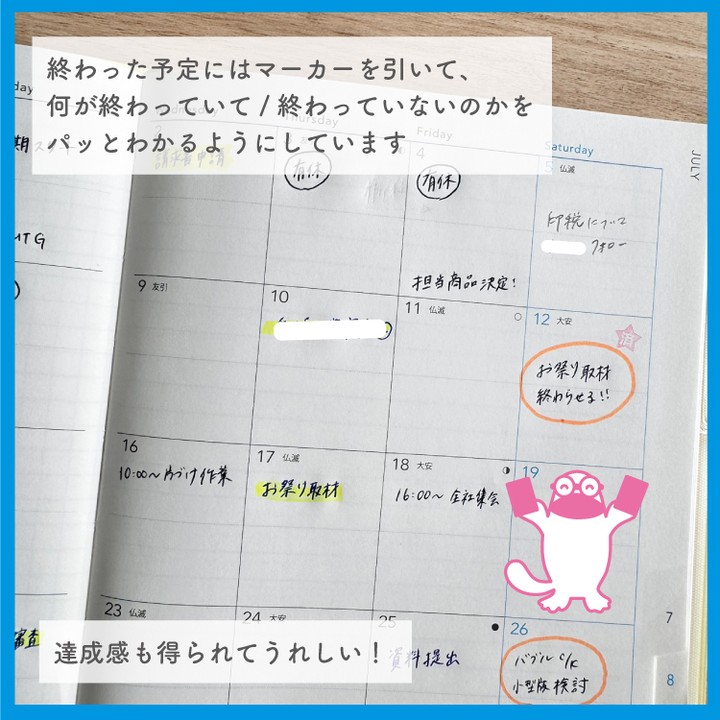 終わった予定にはマーカーを引いて、
何が終わっていて / 終わっていないのかを
パッとわかるようにしています
Friday
Saturday
JULY
請求書申請
有休
4
有休
担当商品決定!
5 仏滅
印税について
フォロー
MTG
9 友引
10
11 仏滅
12 大安
済
お祭り取材
終わらせる!!
16
10:00〜片づけ作業
17 仏滅
お祭り取材
18 大安
16:00〜 全社集会
19
23 仏滅
24 大安
25
資料提出
26
バブル c/k
小型版 検討
審査
7
8
達成感も得られてうれしい！